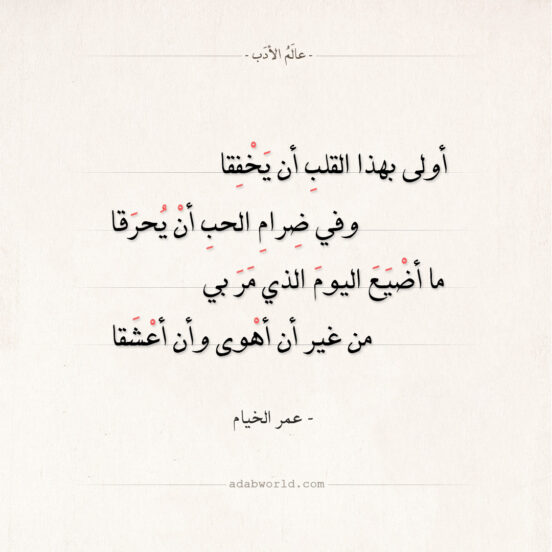 - عالَمُ الأدَب -
أولى بهذا القلبِ أن يَخْفِقا
وفي ضِرامِ الحبِ أنْ يُحرَقا
ما أضْيَعَ اليومَ الذي مَرَ بي
من غير أن أهْوى وأن أعْشَقا
- عمر الخيام
adabworld.com